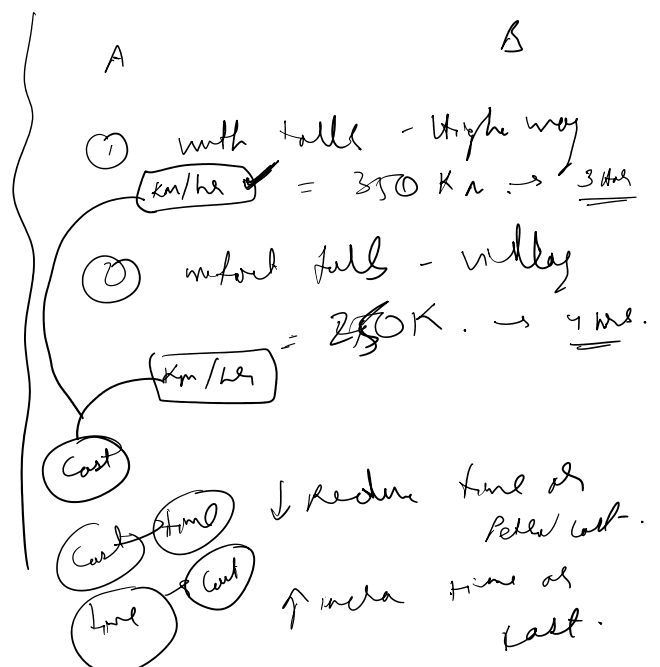 A B
① with tolls - Highway
Km/hr = 350 Km → 3 Hrs
② without tolls - village
= 250K. → 4 hrs.
Km/hr
Cost
↓ Reduce time or
Cost time
Petrol cost.
time Cost
↑ time or
cost.